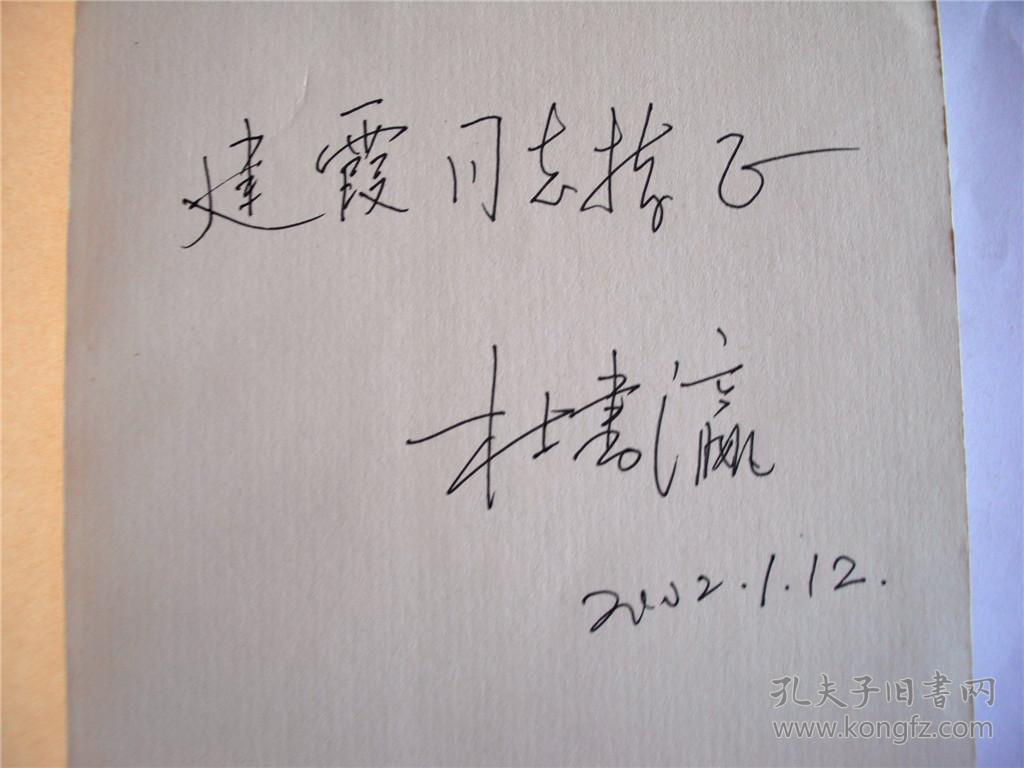 建霞同志指正
杜書瀛
2002.1.12.
孔夫子旧書网
www.kongfz.com